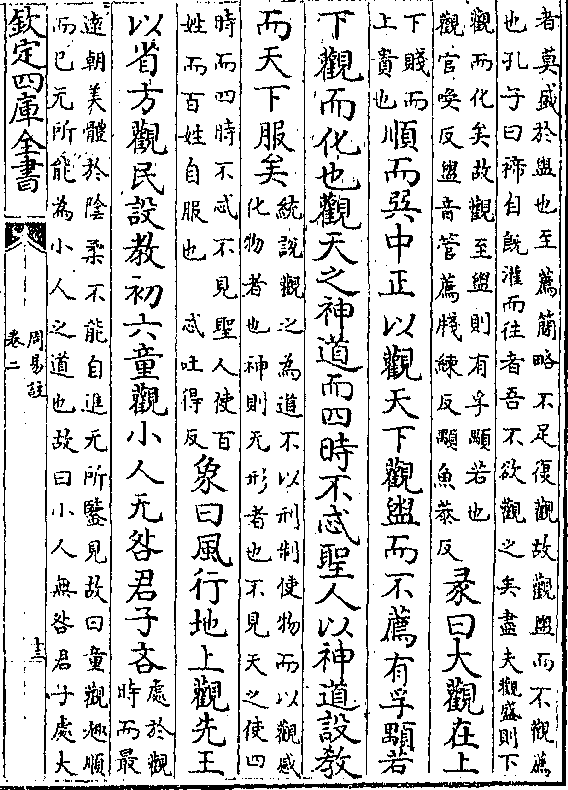 者莫盛於盥也至薦簡略不足復觀故觀盥而不觀薦
也孔子曰禘自既灌而往者吾不欲觀之矣盡夫觀盛則下
觀而化矣故觀至盥則有孚顒若也
觀官喚反盥音管薦牋練反顒魚恭反
彖曰大觀在上
下賤而
上貴也
順而巽中正以觀天下觀盥而不薦有孚顒若
下觀而化也觀天之神道而四時不忒聖人以神道設教
而天下服矣
統說觀之為道不以刑制使物而以觀感
化物者也神則无形者也不見天之使四
時而四時不忒不見聖人使百
姓而百姓自服也　忒吐得反
象曰風行地上觀先王
以省方觀民設教初六童觀小人无咎君子吝
處於觀
時而最
遠朝美體於陰柔不能自進无所鑒見故曰童觀趣順
而已无所能為小人之道也故曰小人無咎君子處大
欽定四庫全書
周易註
卷二
十三